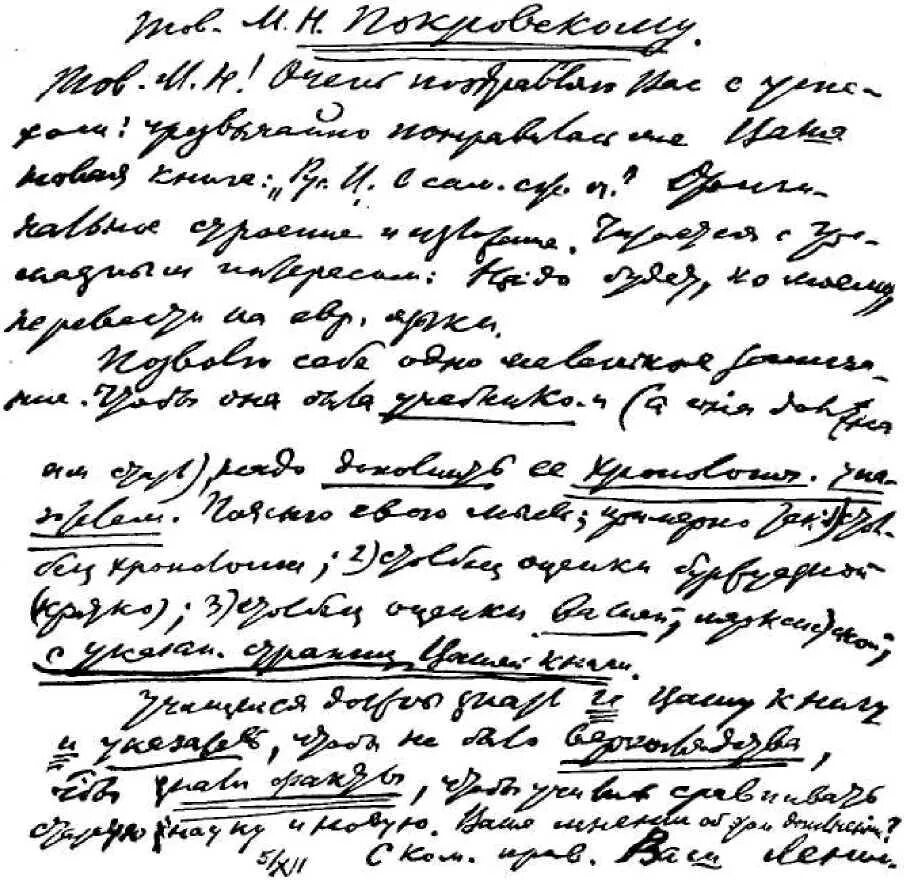 Тов. М. Н. Покровскому.
Тов. М. Н! Очень поздравляю Вас с успе-
хом: чрезвычайно понравилась мне Ваша
новая книга: „Рус. И. в сам. сж. оч." Ориги-
нальное строение и изложение. Читается с гро-
мадным интересом. Надо будет, по-моему,
перевести на евр. языки.
Позволю себе одно маленькое замеча-
ние. Чтобы она была учебником (а она должна
им стать), надо дополнить ее хронологич. ука-
зателем. Поясню свою мысль; примерно так: 1) стол-
бец хронологии; 2) столбец оценки буржуазной
(кратко); 3) столбец оценки Вашей, марксистской;
с указан. страниц Вашей книги.
Учащиеся должны знать и Вашу книгу
и указатель, чтобы не было верхоглядства,
чтобы знали факты, чтобы учились сравнивать
старую науку и новую. Ваше мнение об этом дополнении?
5/XII С ком. прив. Ваш Ленин.